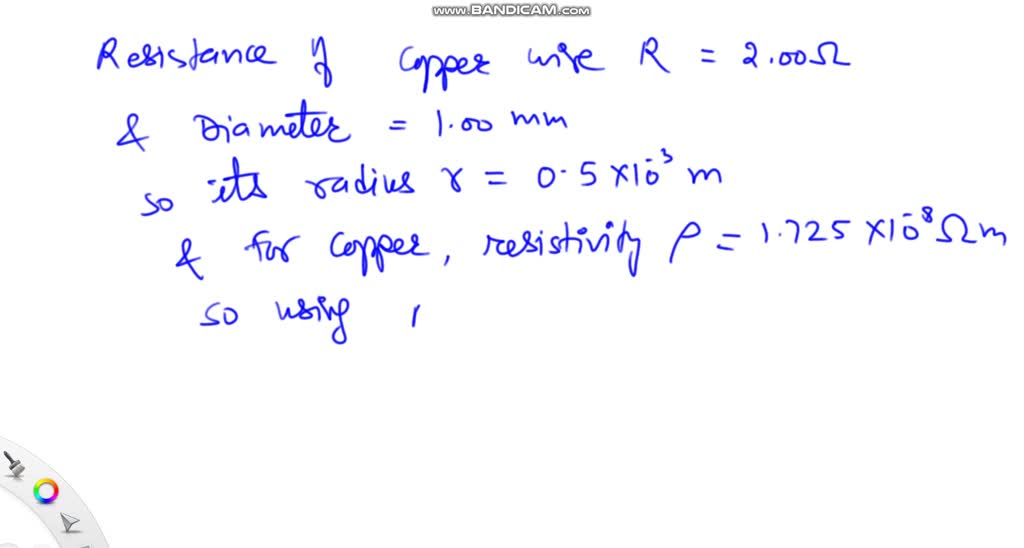 www.BANDICAM.com
Resistance of Copper wire R = 2.00Ω
& Diameter = 1.00 mm
so its radius r = 0.5 ×10⁻³ m
& for copper, resistivity ρ = 1.725 ×10⁻⁸ Ω m
so using